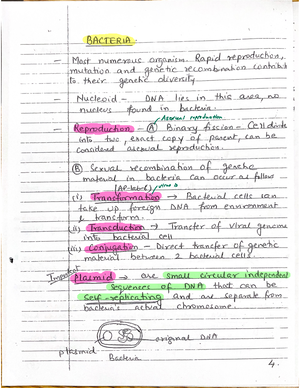 BACTERIA
- Most numerous organism. Rapid reproduction,
mutation and genetic recombination contribut
to their genetic diversity
Nucleoid - DNA lies in this area, no
nucleus found in bacteria.
Asexual reproduction
- Reproduction - (A) Binary fission - Cell divide
into two, exact copy of parent, can be
considered asexual reproduction.
(B) Sexual recombination of genetic
material in bacteria can occur as follows
(i) Transformation → Bacterial cells can
take up foreign DNA from environment
& transform.
(ii) Transduction → Transfer of viral genome
into bacterial cell
(iii) Conjugation - Direct transfer of genetic
material between 2 bacterial cells.
Important
Plasmid → are small circular independent
sequences of DNA that can be
self-replicating and are separate from
bacteria's actual chromosome.
original DNA
plasmid
Bacteria
4.